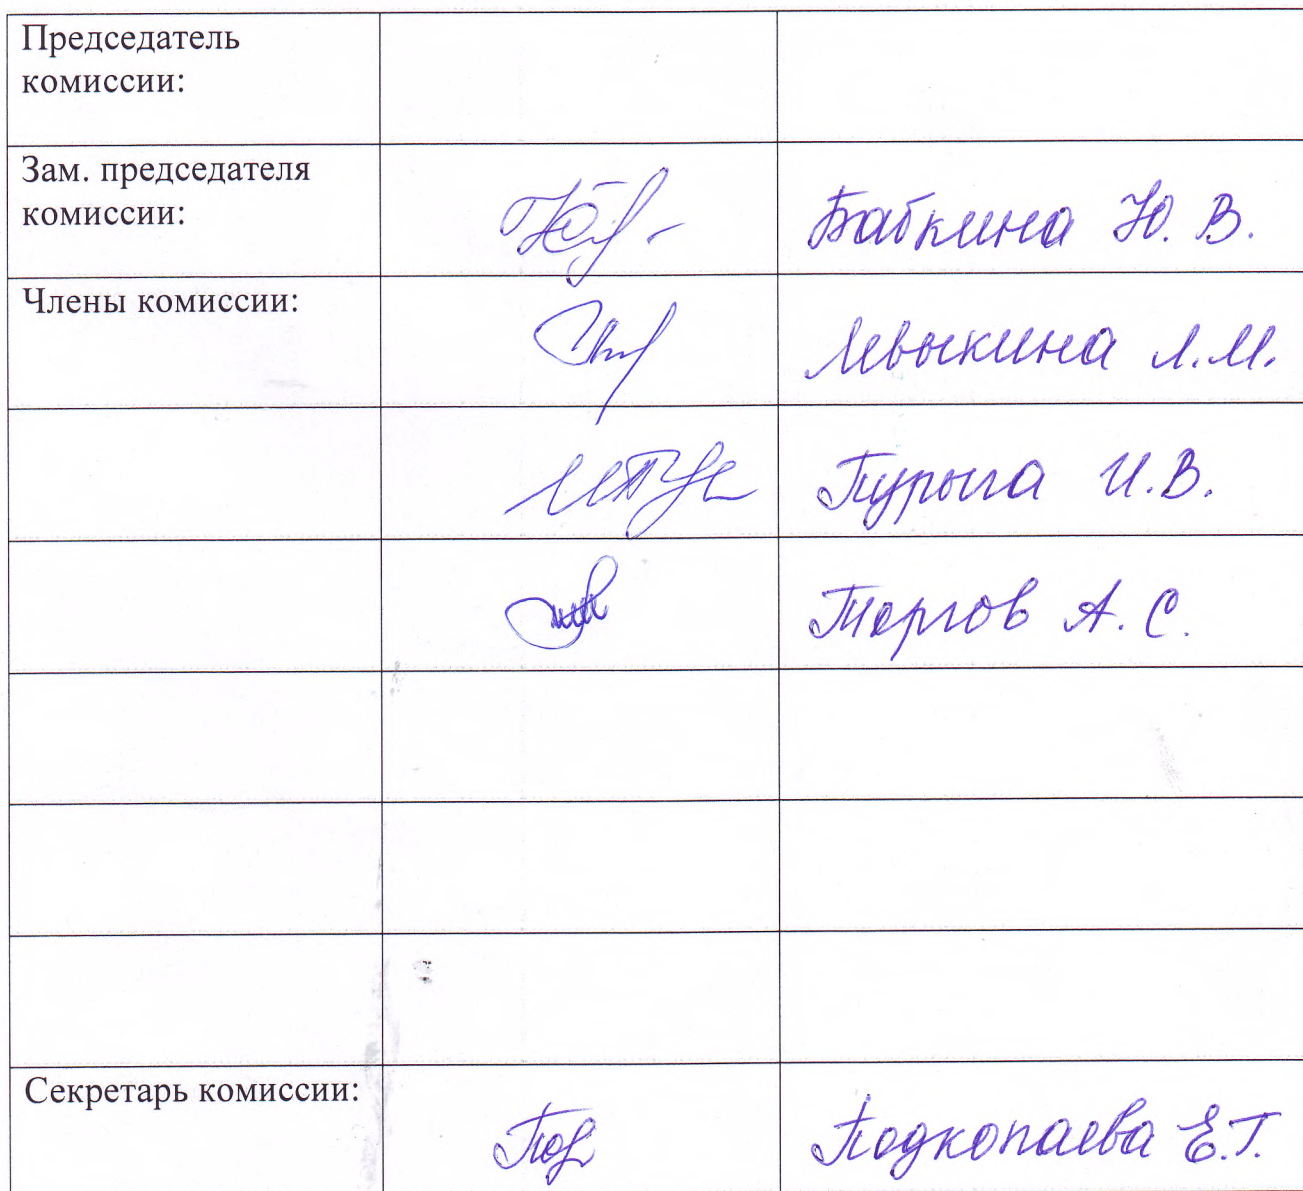 Председатель
комиссии:
Зам. председателя
комиссии:
Бабкина Ю. В.
Члены комиссии:
Левыкина Л.М.
Турыга И.В.
Торгов А. С.
Секретарь комиссии:
Подкопаева Е.Г.